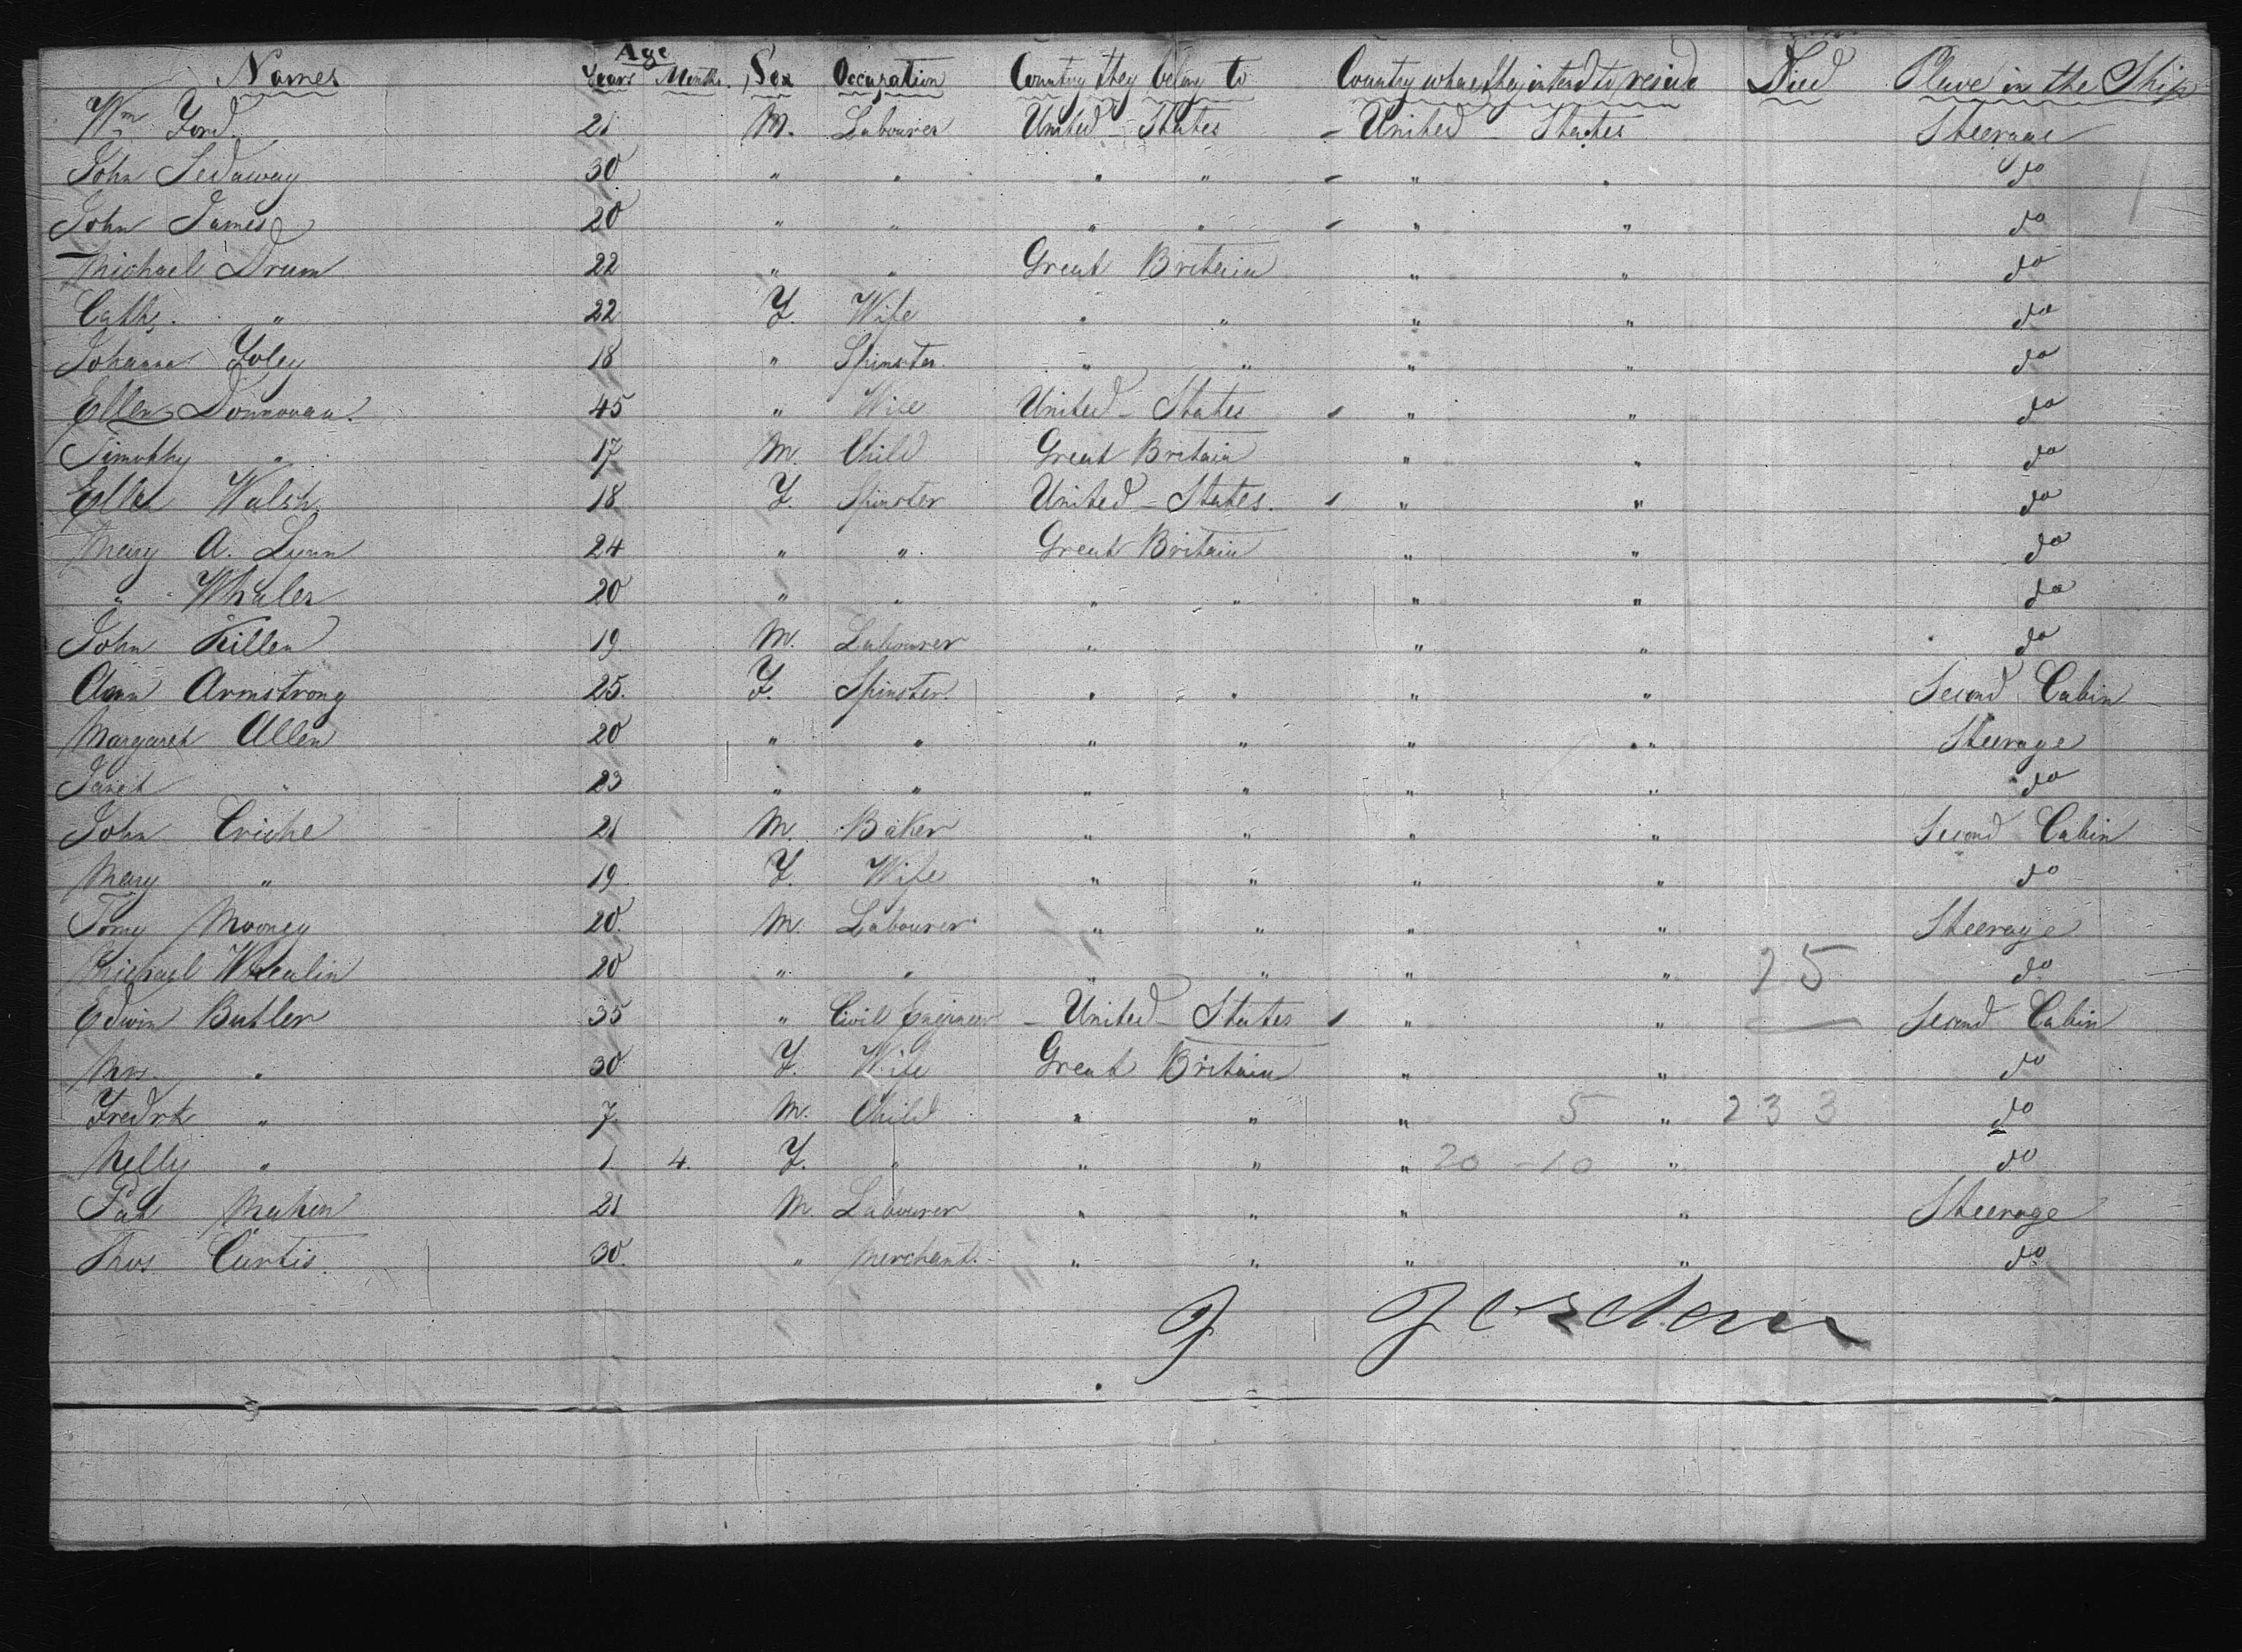 Age
Names Years Months. Sex Occupation Country they belong to Country where they intend to reside Died Place in the Ship
Wm Ford. 21 M. Labourer United States - United States Steerage
John Sedaway 30 " " " " - " " do
John James 20 " " " " - " " do
Michael Drum 22 " " Great Britain " " do
Cath. " 22 F. Wife " " " " do
Johanna Foley 18 " Spinster " " " " do
Ellen Donnovan. 45 " Wife United - States " " do
Timothy " 17 M. Child Great Britain " " do
Ellen Walsh. 18 F. Spinster United - States. " " do
Mary A. Lynn 24 " " Great Britain " " do
" Whaler 20 " " " " " " do
John Killen 19. M. Labourer " " " do
Ann Armstrong 25. F. Spinster. " " " " Second Cabin
Margaret Allen 20 " " " " " " Steerage
Janet " 23 " " " " " " do
John Criche 21 M. Baker " " " " Second Cabin
Mary " 19. F. Wife " " " " do
Tomy Mooney 20. M. Labourer " " " " Steerage
Michael Whealin 20 " " " " " " 25 do
Edwin Butler 35 " Civil Engineer - United - States " " Second Cabin
Mrs. " 30 F. Wife Great Britain " " do
Fredrk " 7 M. Child " " " 5 " 233 do
Nelly " 1 4. F. " " " " 20 - 10 " do
Pat Mahen 21 M. Labourer " " " " Steerage
Thos Curtis. 30. " Merchant. " " " " do
J Jordan